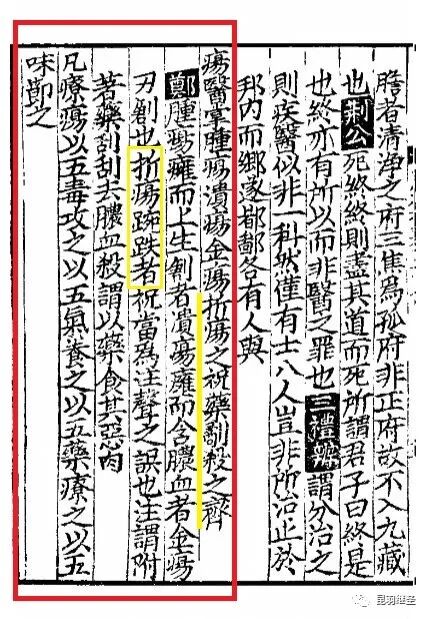 膽者清淨之府三焦為孤府非正府故不入九藏
也荆公死終終則盡其道而死所謂君子曰終是
也終亦有所以而非醫之罪也三禮辯謂分治之
則疾醫似非一科然僅有士八人豈非所治止於
邦内而鄉遂都鄙各有人與
瘍醫掌腫瘍潰瘍金瘍折瘍之祝藥劀殺之齊
鄭腫瘍癰而上生創者潰瘍癰而含膿血者金瘍
刃創也折瘍踠跌者祝當為注聲之誤也注謂附
著藥刮刮去膿血殺謂以藥食其惡肉
凡療瘍以五毒攻之以五氣養之以五藥療之以五
味節之
昆羽继圣